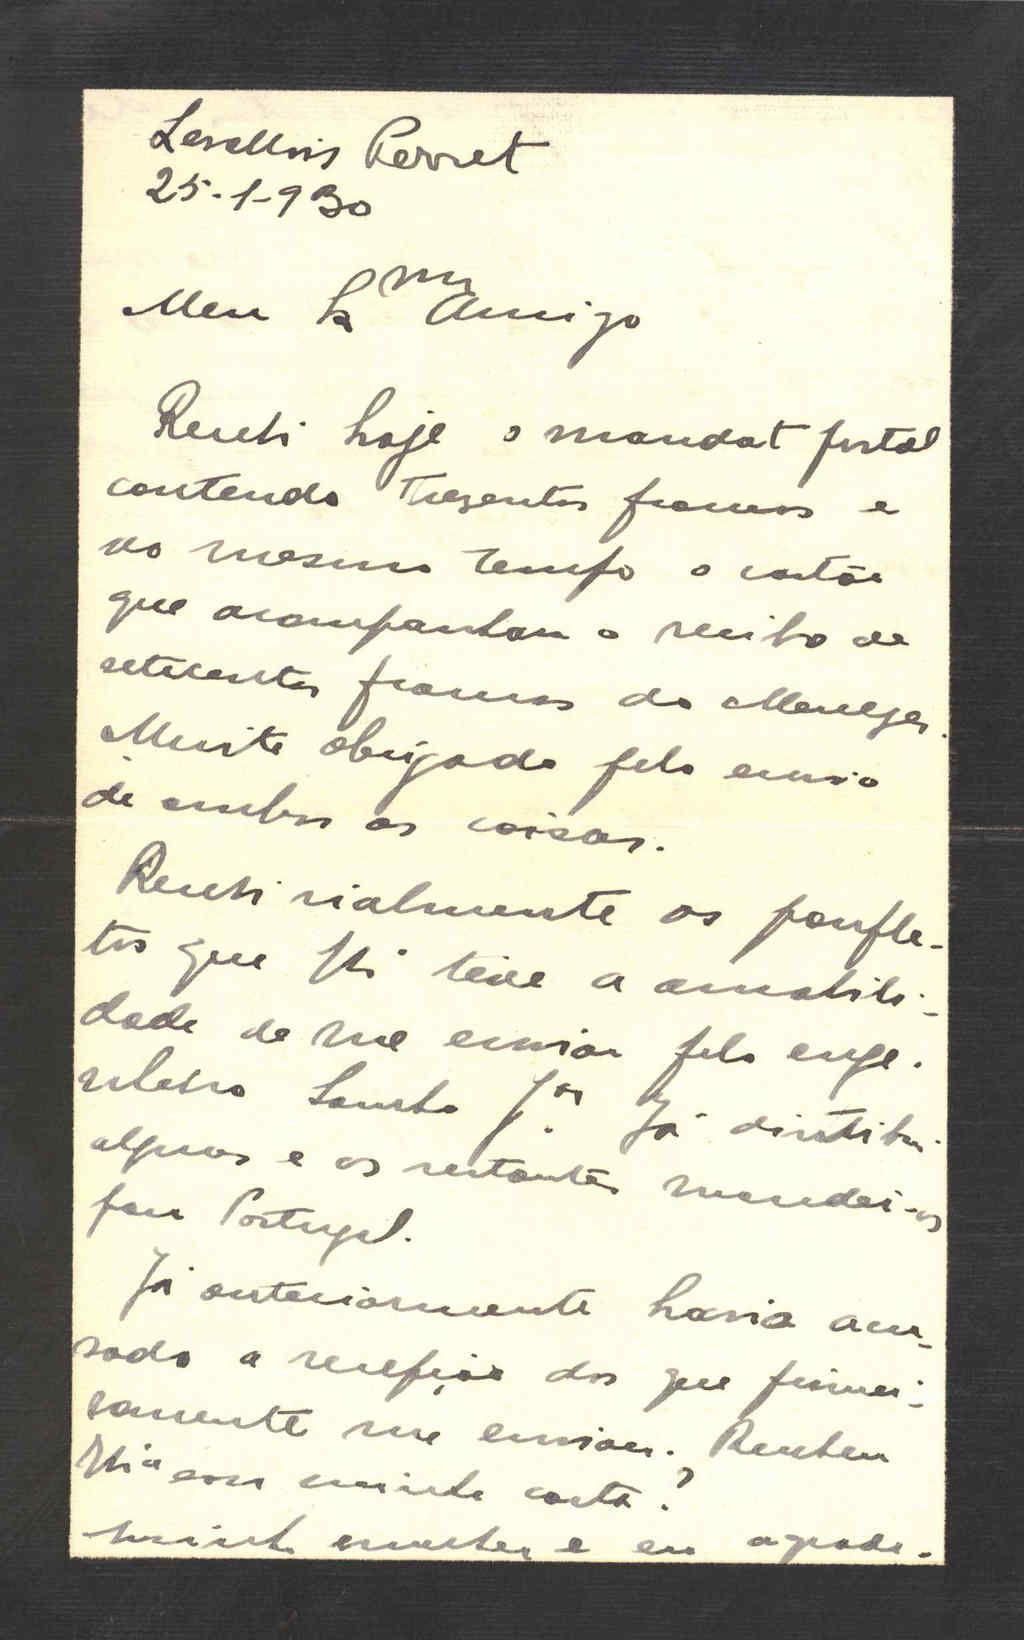 Levallois Perret
25-1-930
Meu Amigo
Recebi hoje o mandat postal
contendo trezentos francos e
ao mesmo tempo o cartão
que acompanhou o recibo de
setecentos francos do Menezes.
Muito obrigado pelo envio
de ambas as coisas.
Recebi rialmente os panfle-
tos que teve a amabili-
dade de me enviar pelo enge-
nheiro Jor. Já distribui
alguns e os restantes mandei-os
para Portugal.
Já anteriormente havia acu-
sado a recepção dos que primei-
ramente me enviou. Recebeu
essa minha carta?
Minha mulher e eu agrade-